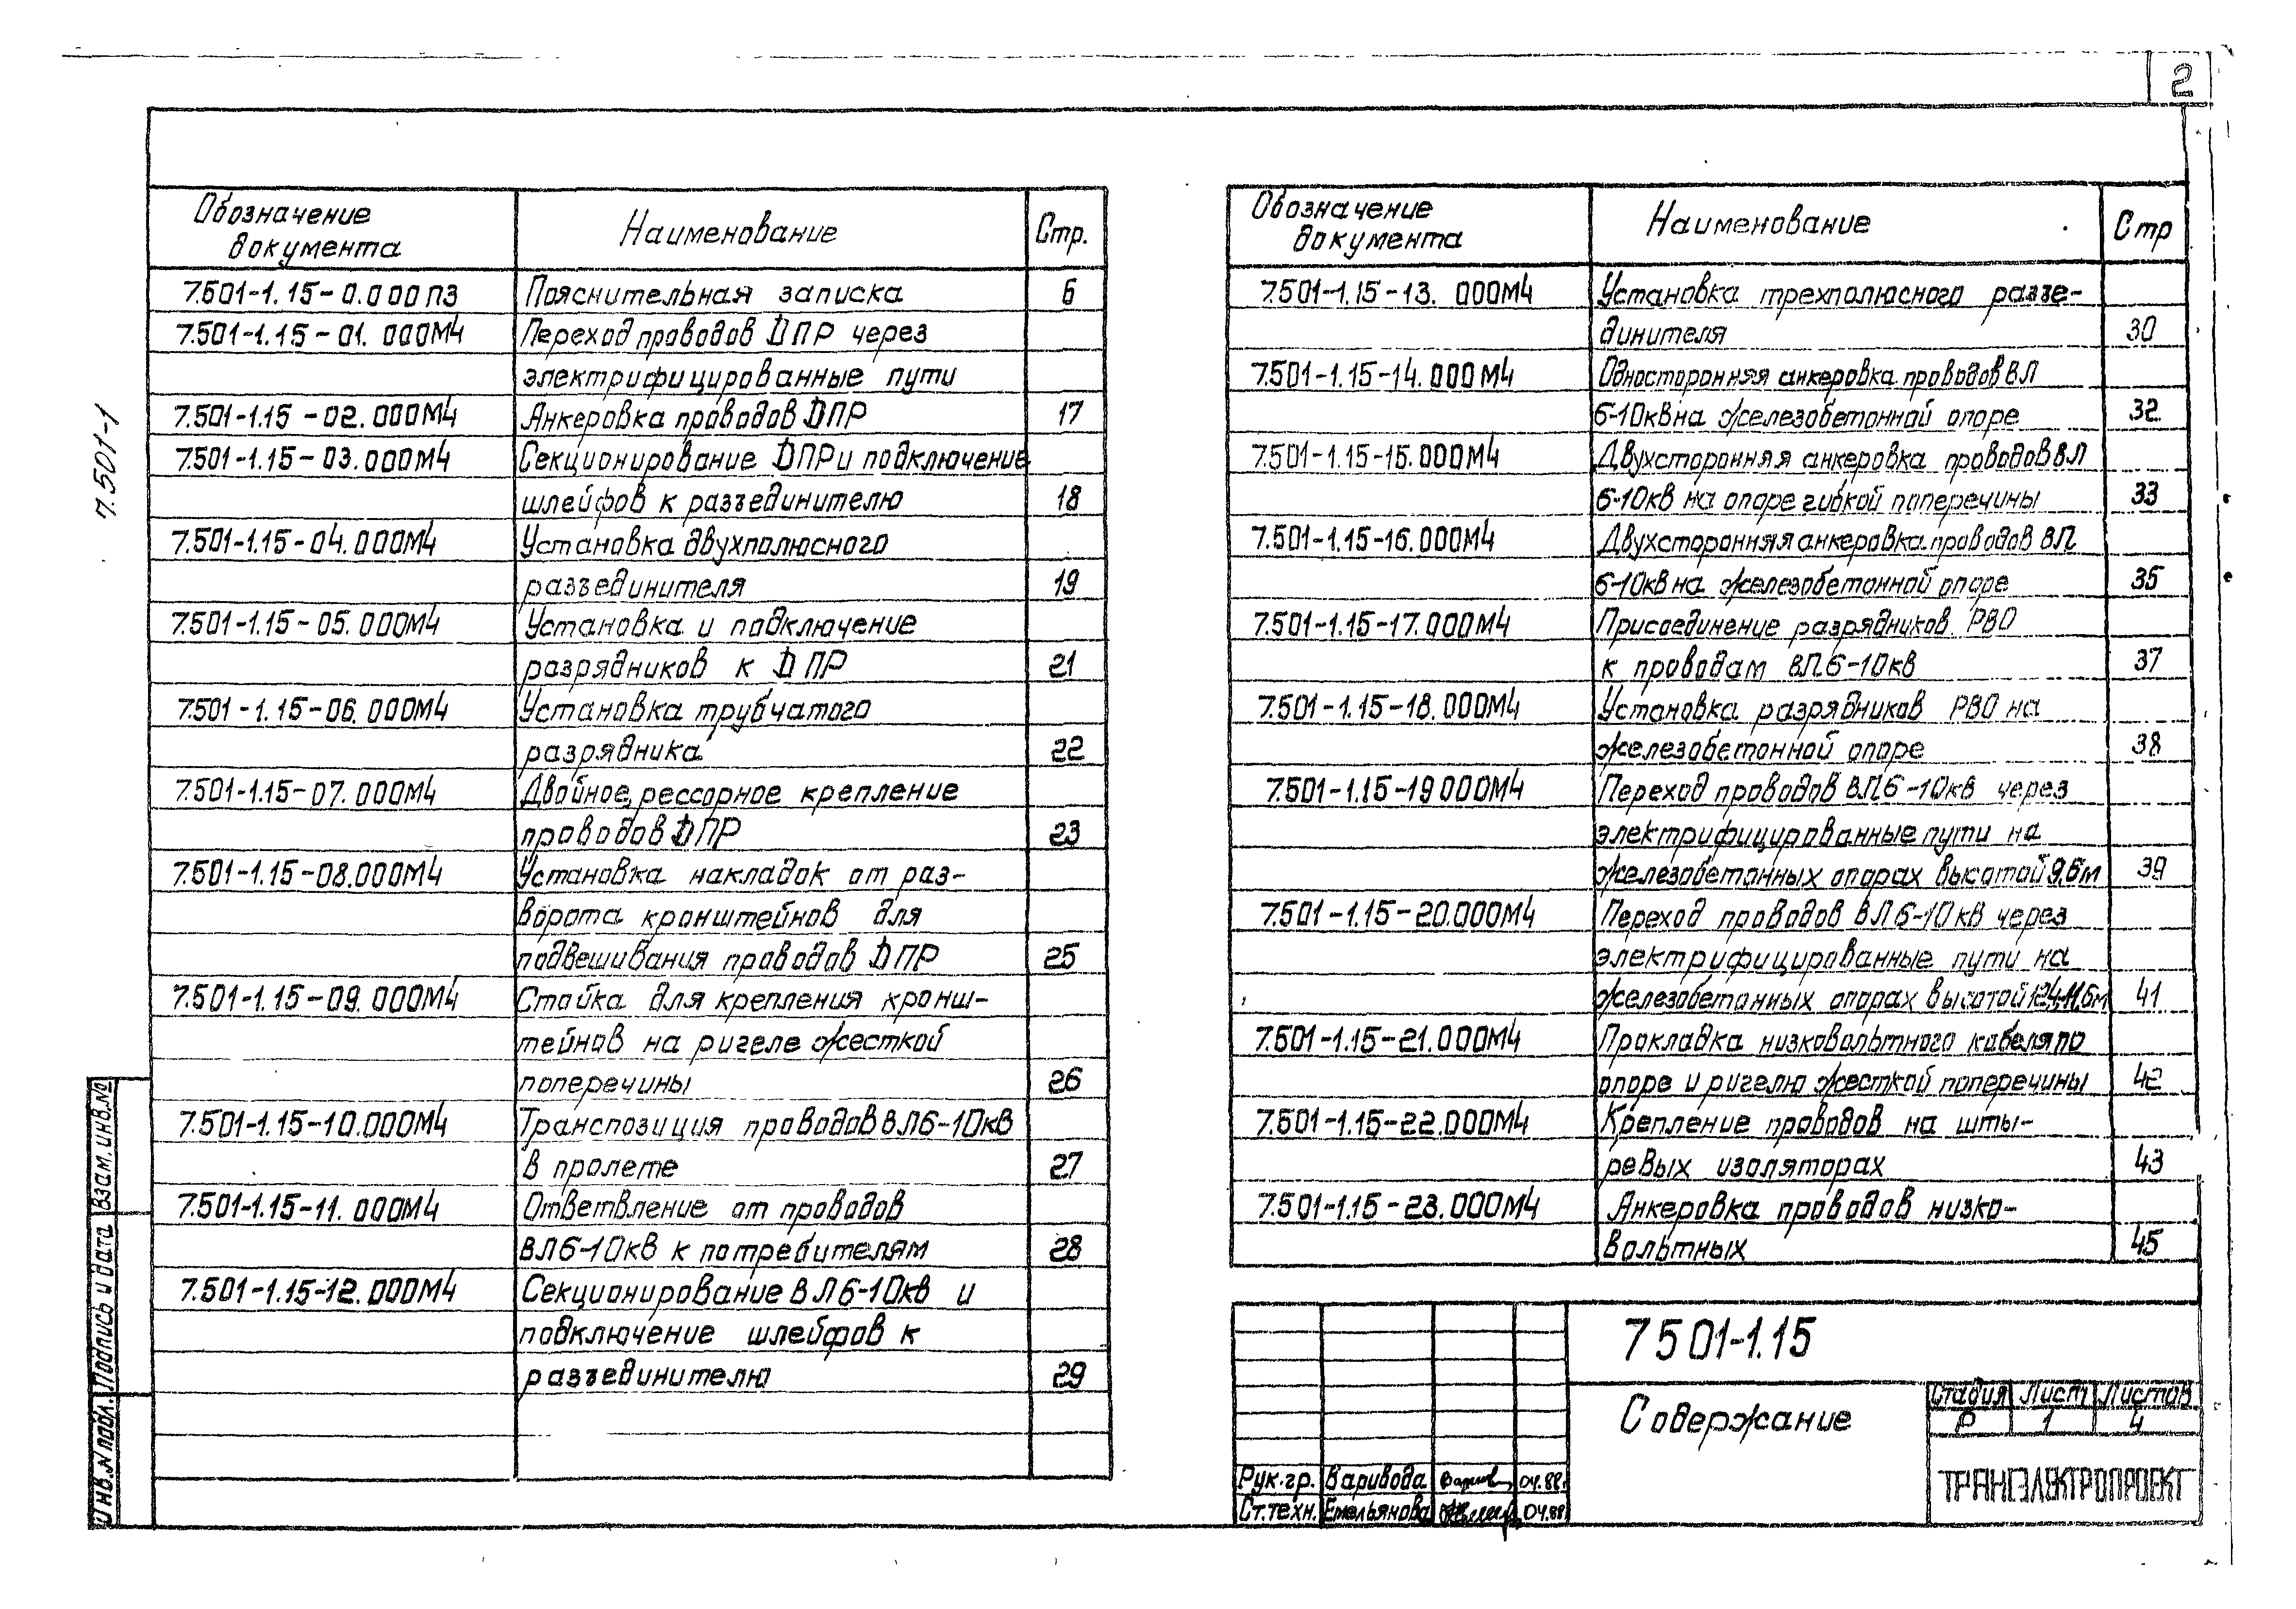 2
7.501-1
Обозначение документа Наименование Стр.
7.501-1.15-0.000ПЗ Пояснительная записка 6
7.501-1.15-01.000М4 Переход проводов ДПР через
электрифицированные пути
7.501-1.15-02.000М4 Анкеровка проводов ДПР 17
7.501-1.15-03.000М4 Секционирование ДПР и подключение
шлейфов к разъединителю 18
7.501-1.15-04.000М4 Установка двухполюсного
разъединителя 19
7.501-1.15-05.000М4 Установка и подключение
разрядников к ДПР 21
7.501-1.15-06.000М4 Установка трубчатого
разрядника 22
7.501-1.15-07.000М4 Двойное, рессорное крепление
проводов ДПР 23
7.501-1.15-08.000М4 Установка накладок от раз-
ворота кронштейнов для
подвешивания проводов ДПР 25
7.501-1.15-09.000М4 Стойка для крепления кронш-
тейнов на ригеле жесткой
поперечины 26
7.501-1.15-10.000М4 Транспозиция проводов ВЛ6-10кв
в пролете 27
7.501-1.15-11.000М4 Ответвление от проводов
ВЛ6-10кв к потребителям 28
7.501-1.15-12.000М4 Секционирование ВЛ6-10кв и
подключение шлейфов к
разъединителю 29
Обозначение документа Наименование Стр
7.501-1.15-13.000М4 Установка трехполюсного разъе-
динителя 30
7.501-1.15-14.000М4 Односторонняя анкеровка проводов ВЛ
6-10кв на железобетонной опоре 32
7.501-1.15-15.000М4 Двухсторонняя анкеровка проводов ВЛ
6-10кв на опоре гибкой поперечины 33
7.501-1.15-16.000М4 Двухсторонняя анкеровка проводов ВЛ
6-10кв на железобетонной опоре 35
7.501-1.15-17.000М4 Присоединение разрядников РВО
к проводам ВЛ6-10кв 37
7.501-1.15-18.000М4 Установка разрядников РВО на
железобетонной опоре 38
7.501-1.15-19 000М4 Переход проводов ВЛ6-10кв через
электрифицированные пути на
железобетонных опорах высотой 9,6м 39
7.501-1.15-20.000М4 Переход проводов ВЛ6-10кв через
электрифицированные пути на
железобетонных опорах высотой 41
7.501-1.15-21.000М4 Прокладка низковольтного кабеля по
опоре и ригелю жесткой поперечины 42
7.501-1.15-22.000М4 Крепление проводов на шты-
ревых изоляторах 43
7.501-1.15-23.000М4 Анкеровка проводов низко-
вольтных 45
7 501-1.15
Содержание
Стадия Лист Листов
Р 1 4
ТРАНСЭЛЕКТРОПРОЕКТ
Рук.гр. Варивода 04.88г
Ст.техн. Емельянова 04.88г
Инв.N подл. Подпись и дата Взам.инв.№